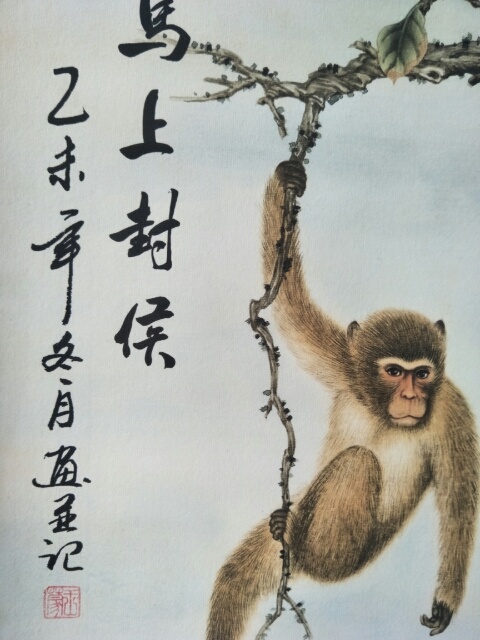 馬上封侯
乙未年冬月画並记